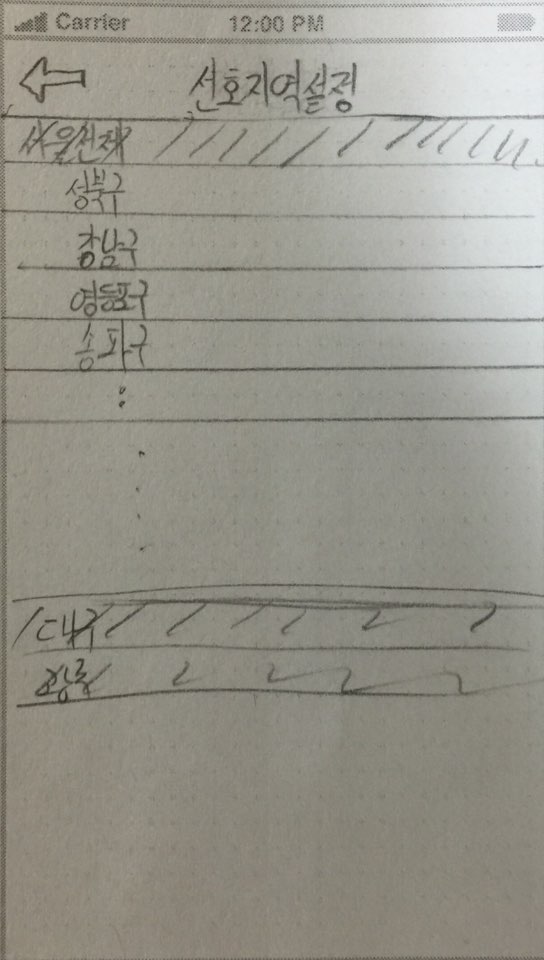 Carrier 12:00 PM
선호지역설정
서울전체
성북구
강남구
영등포구
송파구
:
대구
광주